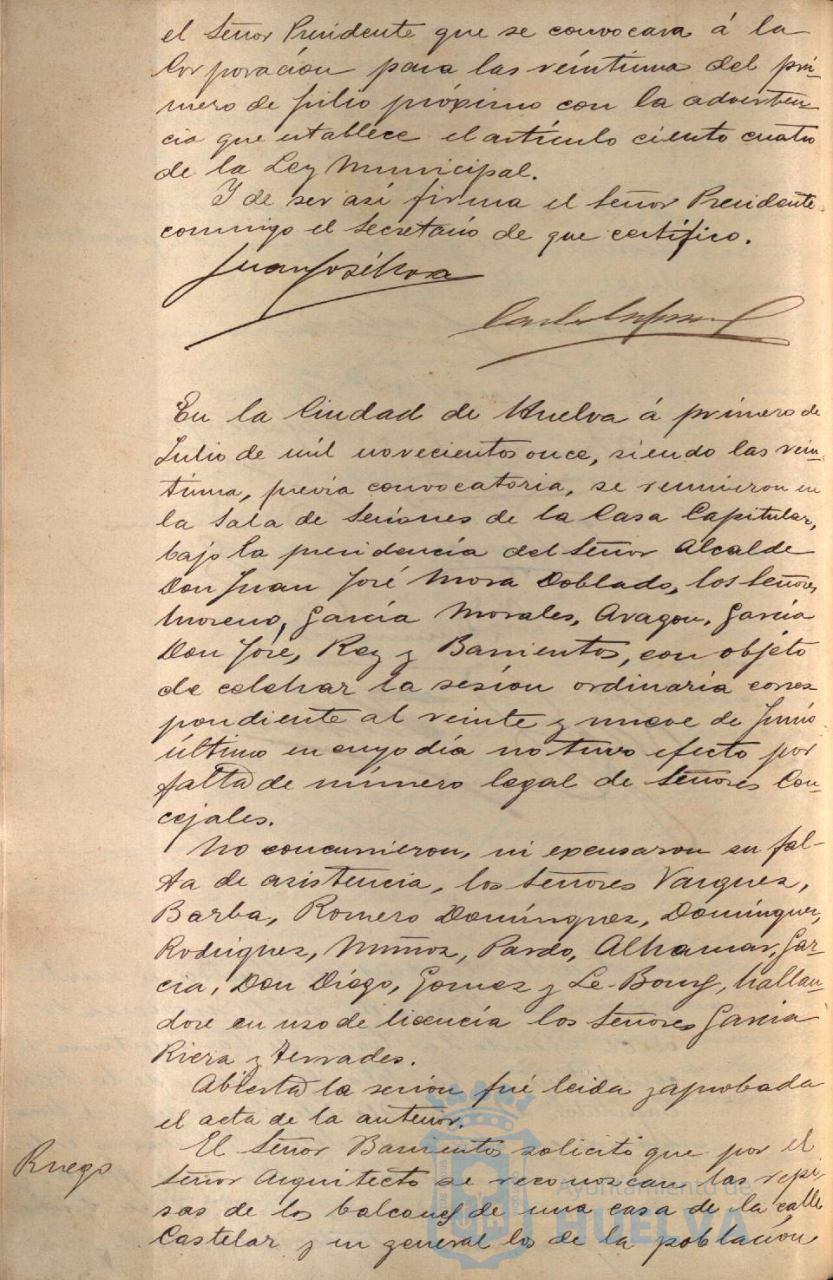 el Señor Presidente que se convocara á la
Corporación para las veintiuna del pri-
mero de Julio próximo con la adverten
cia que establece el artículo ciento cuatro
de la Ley Municipal.
Y de ser así firma el Señor Presidente
conmigo el Secretario de que certifico.
Juan José Mora
En la Ciudad de Huelva á primero de
Julio de mil novecientos once, siendo las vein-
tiuna, previa convocatoria, se reunieron en
la Sala de Sesiones de la Casa Capitular,
bajo la presidencia del Señor Alcalde
Don Juan José Mora Doblado, los Señores
Moreno, García Morales, Aragon, García
Don José, Rey y Barrientos, con objeto
de celebrar la sesión ordinaria corres
pondiente al veinte y nueve de Junio
último en cuyo día no tuvo efecto por
falta de número legal de Señores Con-
cejales.
No concurrieron, ni excusaron su fal-
ta de asistencia, los Señores Vazquez,
Barba, Romero Domínguez, Domínguez,
Rodriguez, Muñoz, Pardo, Alhamar, Gar-
cia, Don Diego, Gomez y Le-Bourg, hallan-
dose en uso de licencia los Señores Garcia
Riera y Terrades.
Abierta la sesión fué leida y aprobada
el acta de la anterior.
Ruego
El Señor Barrientos solicitó que por el
Señor Arquitecto se reconozcan las repi-
sas de los balcones de una casa de la calle
Castelar y en general los de la población
Ayuntamiento de
HUELVA